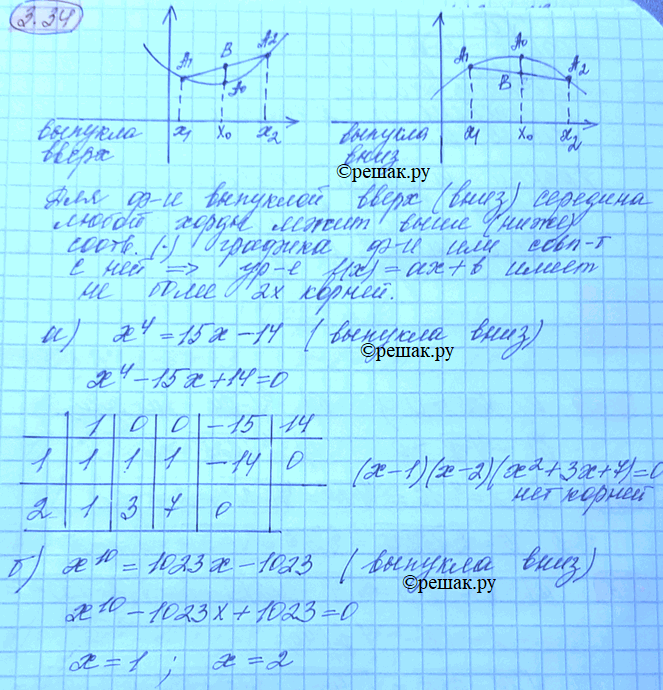 3.34
A₁ B A₂ A₀
x₁ x₀ x₂
выпукла
вверх
A₁ A₀ B A₂
x₁ x₀ x₂
выпукла
вниз
©решак.ру
Для ф-и выпуклой вверх (вниз) середина
любой хорды лежит выше (ниже)
соотв. (·) графика ф-и или совп-т
с ней => ур-е f(x) = ax+b имеет
не более 2х корней.
а) x⁴ = 15x - 14 (выпукла вниз)
©решак.ру
x⁴ - 15x + 14 = 0
1 0 0 -15 14
1 1 1 1 -14 0
2 1 3 7 0
(x-1)(x-2)(x²+3x+7)=0
нет корней
б) x¹⁰ = 1023x - 1023 (выпукла вниз)
©решак.ру
x¹⁰ - 1023x + 1023 = 0
x = 1 ; x = 2